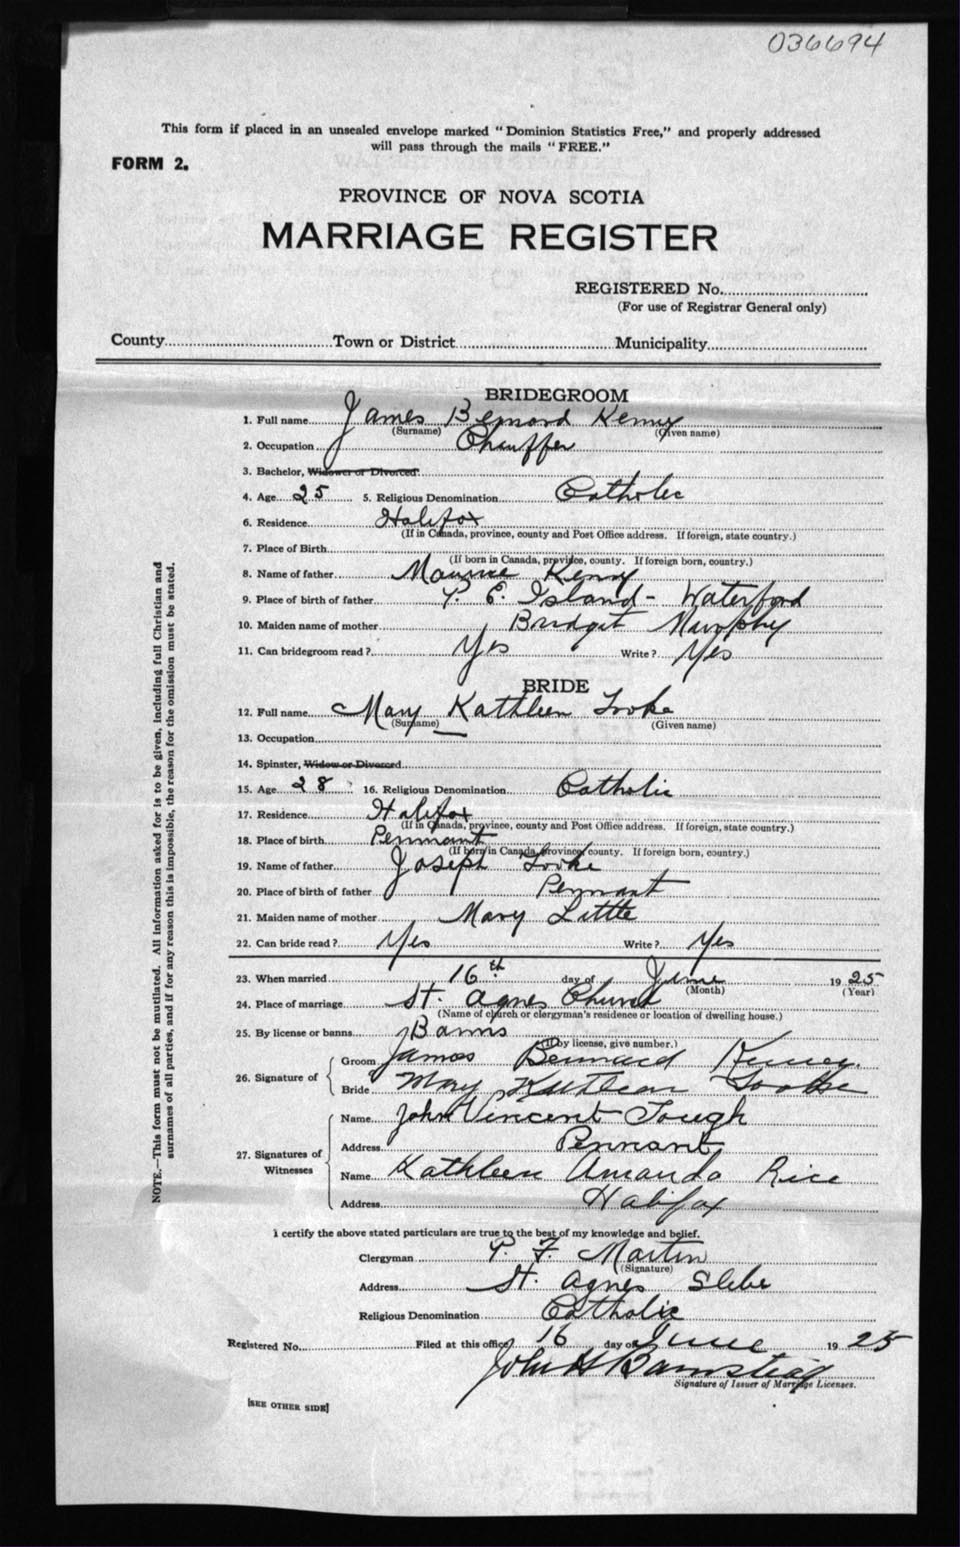 036694
This form if placed in an unsealed envelope marked "Dominion Statistics Free," and properly addressed
will pass through the mails "FREE."
FORM 2.
PROVINCE OF NOVA SCOTIA
MARRIAGE REGISTER
REGISTERED No.
(For use of Registrar General only)
County Town or District Municipality
BRIDEGROOM
1. Full name James Bernard Kenny
(Surname) (Given name)
2. Occupation Chauffer
3. Bachelor, Widower or Divorced.
4. Age 25 5. Religious Denomination Catholic
6. Residence Halifax
(If in Canada, province, county and Post Office address. If foreign, state country.)
7. Place of Birth
(If born in Canada, province, county. If foreign born, country.)
8. Name of father Maurice Kenny
9. Place of birth of father P. E. Island - Waterford
10. Maiden name of mother Bridget Murphy
11. Can bridegroom read? Yes Write? Yes
BRIDE
12. Full name Mary Kathleen Tooke
(Surname) (Given name)
13. Occupation
14. Spinster, Widow or Divorced.
15. Age 28 16. Religious Denomination Catholic
17. Residence Halifax
(If in Canada, province, county and Post Office address. If foreign, state country.)
18. Place of birth Pennant
(If born in Canada, province, county. If foreign born, country.)
19. Name of father Joseph Tooke
20. Place of birth of father Pennant
21. Maiden name of mother Mary Little
22. Can bride read? Yes Write? Yes
23. When married 16th day of June 1925
(Month) (Year)
24. Place of marriage St. Agnes Church
(Name of church or clergyman's residence or location of dwelling house.)
25. By license or banns Banns
(If by license, give number.)
26. Signature of
Groom James Bernard Kenney.
Bride Mary Kathleen Tooke
27. Signatures of Witnesses
Name John Vincent Tough
Address Pennant
Name Kathleen Amanda Rice
Address Halifax
I certify the above stated particulars are true to the best of my knowledge and belief.
Clergyman P. F. Martin
(Signature)
Address St. Agnes Glebe
Religious Denomination Catholic
Registered No. Filed at this office 16 day of June 1925
John H Barnstead
Signature of Issuer of Marriage Licenses.
[SEE OTHER SIDE]
NOTE.—This form must not be mutilated. All information asked for is to be given, including full Christian and
surnames of all parties, and if for any reason this is impossible, the reason for the omission must be stated.